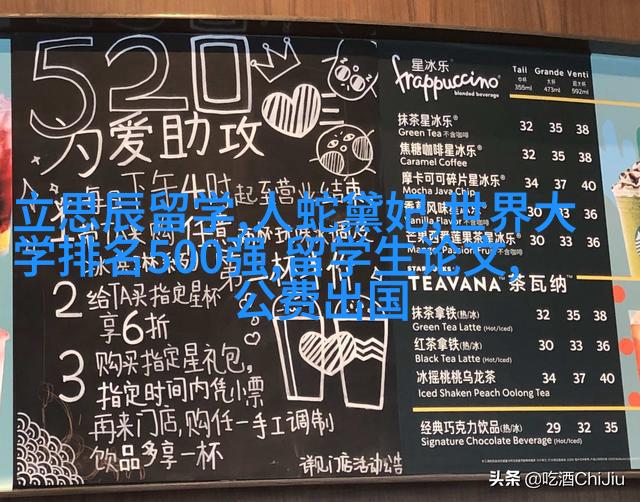 520
为爱助攻
每日下午4时起至营业结束
2 给TA买指定星杯
享6折
3 购买指定星礼包,
指定时间内凭小票
再来门店,购任一手工调制
饮品多享一杯
详见门店活动公告
立思辰留学,人蛇黛妃,世界大
学排名500强,留学生论文,
公费出国
星冰乐®
frappuccino®
blended beverage
Tall Grande Venti
中杯 大杯 超大杯
355ml 473ml 592ml
抹茶星冰乐® 32 35 38
Green Tea 不含咖啡
焦糖咖啡星冰乐® 32 35 38
Caramel Coffee
摩卡可可碎片星冰乐® 34 37 40
Mocha Java Chip
香草风味星冰乐® 30 33 36
Vanilla Flavor 不含咖啡
芒果西番莲果茶星冰乐® 30 33 36
Mango Passion Fruit
STARBUCKS
TEAVANA™ 茶瓦纳™
抹茶拿铁(热/冰) 32 35 38
Green Tea Latte (Hot/Iced)
红茶拿铁(热/冰) 30 33 36
Black Tea Latte (Hot/Iced)
冰摇桃桃乌龙茶 34 37 40
Iced Shaken Peach Oolong Tea
经典巧克力饮品(热/冰) 29 32 35
Signature Chocolate Beverage (Hot/Iced)
头条 @吃酒ChiJiu